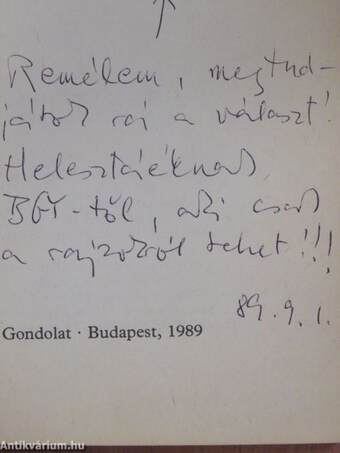 Remélem, megtud-
játok rá a választ!
Helesztáéknak
BGY-től, aki csak
a rajzokról tehet!!!
89. 9. 1.
Gondolat · Budapest, 1989
Antikvárium.hu